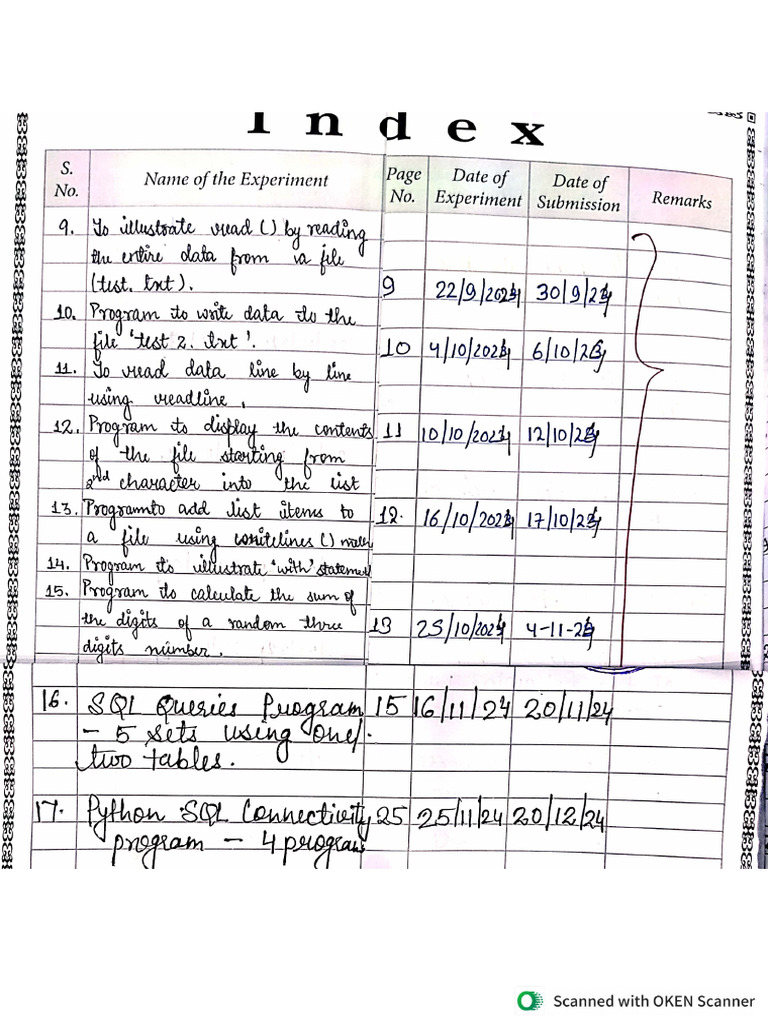 Index
S. No. Name of the Experiment Page No. Date of Experiment Date of Submission Remarks
9. To illustrate read () by reading
the entire data from a file
(test. txt). 9 22/9/2024 30/9/24
10. Program to write data to the
file 'test 2. txt'. 10 4/10/2024 6/10/24
11. To read data line by line
using readline,
12. Program to display the contents 11 10/10/2024 12/10/24
of the file starting from
2nd character into the list
13. Program to add list items to 12. 16/10/2024 17/10/24
a file using writelines ()
14. Program to illustrate 'with' statement
15. Program to calculate the sum of
the digits of a random three 13 25/10/2024 4-11-24
digits number.
16. SQL Queries Program 15 16/11/24 20/11/24
- 5 sets using one/
two tables.
17. Python SQL Connectivity 25 25/11/24 20/12/24
program - 4 program
Scanned with OKEN Scanner